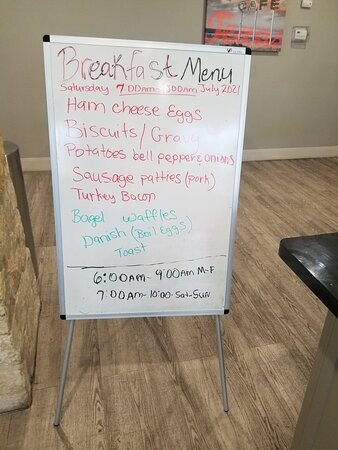 CAFE
Texas
Breakfast Menu
Saturday 7:00am - 10:00am July 2021
Ham cheese Eggs
Biscuits/Gravy
Potatoes bell pepper & onions
Sausage patties (pork)
Turkey Bacon
Bagel waffles
Danish (Boil Eggs)
Toast
6:00AM - 9:00AM M-F
7:00AM - 10:00 - Sat-Sun